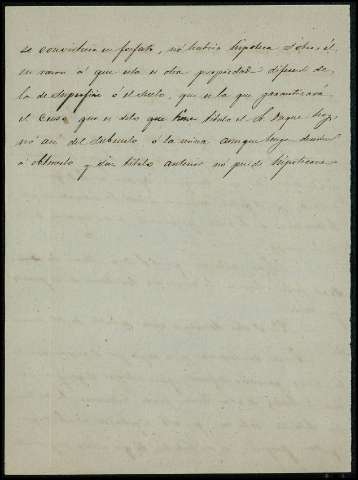 se convirtiera en forfato, no habria hipoteca sobre él,
en razon á que esta es otra propiedad diferente de
la de superficie ó el suelo, que es la que garantizará
el Censo que es de los que tiene titulo el Sr. Duque hoy,
nó asi del subsuelo ó la mina aunque tenga derecho
á obtenerlo y sin titulo anterior no puede hipotecarse